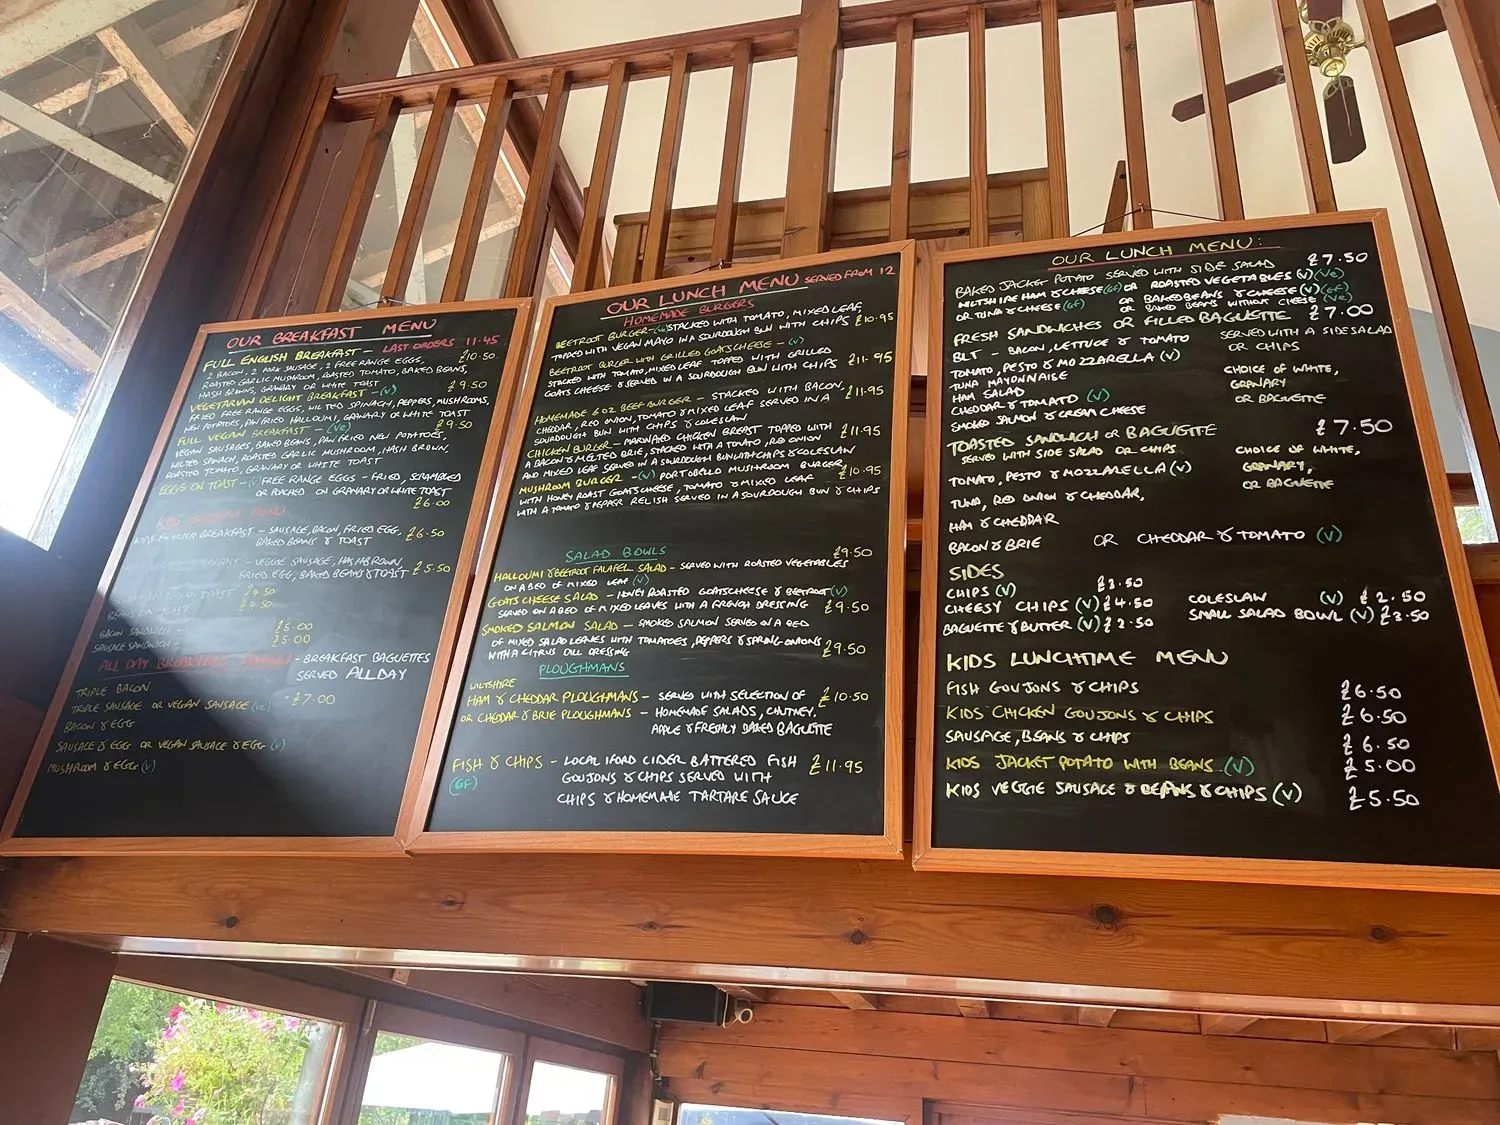 OUR BREAKFAST MENU
LAST ORDERS 11.45
FULL ENGLISH BREAKFAST - £10.50
2 BACON, 2 PORK SAUSAGE, 2 FREE RANGE EGGS,
ROASTED GARLIC MUSHROOM, ROASTED TOMATO, BAKED BEANS,
HASH BROWN, GRANARY OR WHITE TOAST
VEGETARIAN DELIGHT BREAKFAST - (V) £9.50
FRIED FREE RANGE EGGS, WILTED SPINACH, PEPPERS, MUSHROOMS,
NEW POTATOES, PAN FRIED HALLOUMI, GRANARY OR WHITE TOAST
FULL VEGAN BREAKFAST - (Ve) £9.50
VEGAN SAUSAGES, BAKED BEANS, PAN FRIED NEW POTATOES,
WILTED SPINACH, ROASTED GARLIC MUSHROOM, HASH BROWN,
ROASTED TOMATO, GRANARY OR WHITE TOAST
EGGS ON TOAST - FREE RANGE EGGS - FRIED, SCRAMBLED
OR POACHED ON GRANARY OR WHITE TOAST
£6.00
KIDS BREAKFAST MENU
KIDS ENGLISH BREAKFAST - SAUSAGE, BACON, FRIED EGG, £6.50
BAKED BEANS & TOAST
BREAKFAST - VEGGIE SAUSAGE, HASH BROWN, £5.50
FRIED EGG, BAKED BEANS & TOAST
TOAST £4.50
BEANS ON TOAST £4.50
BACON SANDWICH - £6.00
SAUSAGE SANDWICH - £5.00
ALL DAY BREAKFAST - BREAKFAST BAGUETTES
SERVED ALL DAY
TRIPLE BACON
TRIPLE SAUSAGE OR VEGAN SAUSAGE (Ve) - £7.00
BACON & EGG
SAUSAGE & EGG OR VEGAN SAUSAGE & EGG (V)
MUSHROOM & EGG (V)
OUR LUNCH MENU SERVED FROM 12
HOMEMADE BURGERS
BEETROOT BURGER - (Ve) STACKED WITH TOMATO, MIXED LEAF,
TOPPED WITH VEGAN MAYO IN A SOURDOUGH BUN WITH CHIPS £10.95
BEETROOT BURGER WITH GRILLED GOATS CHEESE - (V)
STACKED WITH TOMATO, MIXED LEAF TOPPED WITH GRILLED £11.95
GOATS CHEESE & SERVED IN A SOURDOUGH BUN WITH CHIPS
HOMEMADE 6 OZ BEEF BURGER - STACKED WITH BACON, £11.95
CHEDDAR, RED ONION, TOMATO & MIXED LEAF SERVED IN A
SOURDOUGH BUN WITH CHIPS & COLESLAW
CHICKEN BURGER - MARINATED CHICKEN BREAST TOPPED WITH £11.95
A BACON & MELTED BRIE, STACKED WITH A TOMATO, RED ONION
AND MIXED LEAF SERVED IN A SOURDOUGH BUN WITH CHIPS & COLESLAW
MUSHROOM BURGER - (V) PORTOBELLO MUSHROOM BURGER £10.95
WITH HONEY ROAST GOATS CHEESE, TOMATO & MIXED LEAF
WITH A TOMATO & PEPPER RELISH SERVED IN A SOURDOUGH BUN & CHIPS
SALAD BOWLS
HALLOUMI & BEETROOT FALAFEL SALAD - SERVED WITH ROASTED VEGETABLES £9.50
ON A BED OF MIXED LEAF (V)
GOATS CHEESE SALAD - HONEY ROASTED GOATS CHEESE & BEETROOT (V)
SERVED ON A BED OF MIXED LEAVES WITH A FRENCH DRESSING £9.50
SMOKED SALMON SALAD - SMOKED SALMON SERVED ON A BED
OF MIXED SALAD LEAVES WITH TOMATOES, PEPPERS & SPRING ONIONS £9.50
WITH A CITRUS DILL DRESSING
PLOUGHMANS
WILTSHIRE
HAM & CHEDDAR PLOUGHMANS - SERVED WITH SELECTION OF £10.50
OR CHEDDAR & BRIE PLOUGHMANS - HOMEMADE SALADS, CHUTNEY,
APPLE & FRESHLY BAKED BAGUETTE
FISH & CHIPS - LOCAL IFORD CIDER BATTERED FISH £11.95
(GF) GOUJONS & CHIPS SERVED WITH
CHIPS & HOMEMADE TARTARE SAUCE
OUR LUNCH MENU:
BAKED JACKET POTATO SERVED WITH SIDE SALAD £7.50
WILTSHIRE HAM & CHEESE (GF) OR ROASTED VEGETABLES (V) (Ve)
OR TUNA & CHEESE (GF) OR BAKED BEANS & CHEESE (V) (GF)
OR BAKED BEANS WITHOUT CHEESE (Ve)
FRESH SANDWICHES OR FILLED BAGUETTE £7.00
BLT - BACON, LETTUCE & TOMATO SERVED WITH A SIDE SALAD
TOMATO, PESTO & MOZZARELLA (V) OR CHIPS
TUNA MAYONNAISE CHOICE OF WHITE,
HAM SALAD GRANARY
CHEDDAR & TOMATO (V) OR BAGUETTE
SMOKED SALMON & CREAM CHEESE
TOASTED SANDWICH OR BAGUETTE £7.50
SERVED WITH SIDE SALAD OR CHIPS CHOICE OF WHITE,
TOMATO, PESTO & MOZZARELLA (V) GRANARY,
OR BAGUETTE
TUNA, RED ONION & CHEDDAR,
HAM & CHEDDAR
BACON & BRIE OR CHEDDAR & TOMATO (V)
SIDES
CHIPS (V) £3.50 COLESLAW (V) £2.50
CHEESY CHIPS (V) £4.50 SMALL SALAD BOWL (V) £3.50
BAGUETTE & BUTTER (V) £2.50
KIDS LUNCHTIME MENU
FISH GOUJONS & CHIPS £6.50
KIDS CHICKEN GOUJONS & CHIPS £6.50
SAUSAGE, BEANS & CHIPS £6.50
KIDS JACKET POTATO WITH BEANS (V) £5.00
KIDS VEGGIE SAUSAGE & BEANS & CHIPS (V) £5.50